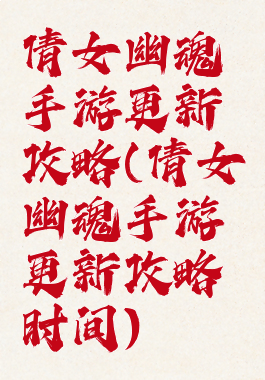 倩女幽魂
手游更新
攻略(倩女
幽魂手游
更新攻略
时间)